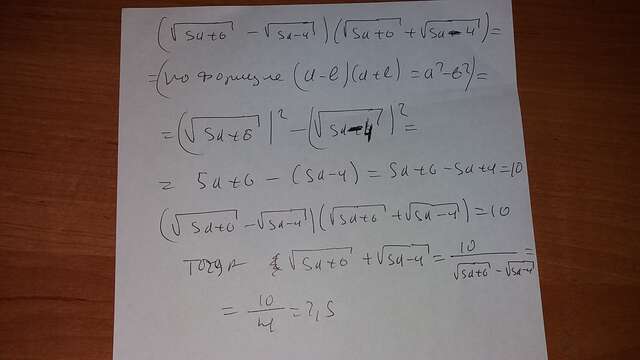 (√5a+6 - √5a-4)(√5a+6 + √5a-4)=
=(по формуле (a-b)(a+b)=a²-b²)=
=(√5a+6)²-(√5a-4)²=
= 5a+6-(5a-4)=5a+6-5a+4=10
(√5a+6-√5a-4)(√5a+6+√5a-4)=10
Тогда √5a+6+√5a-4=10/√5a+6-√5a-4=
=10/4=2,5